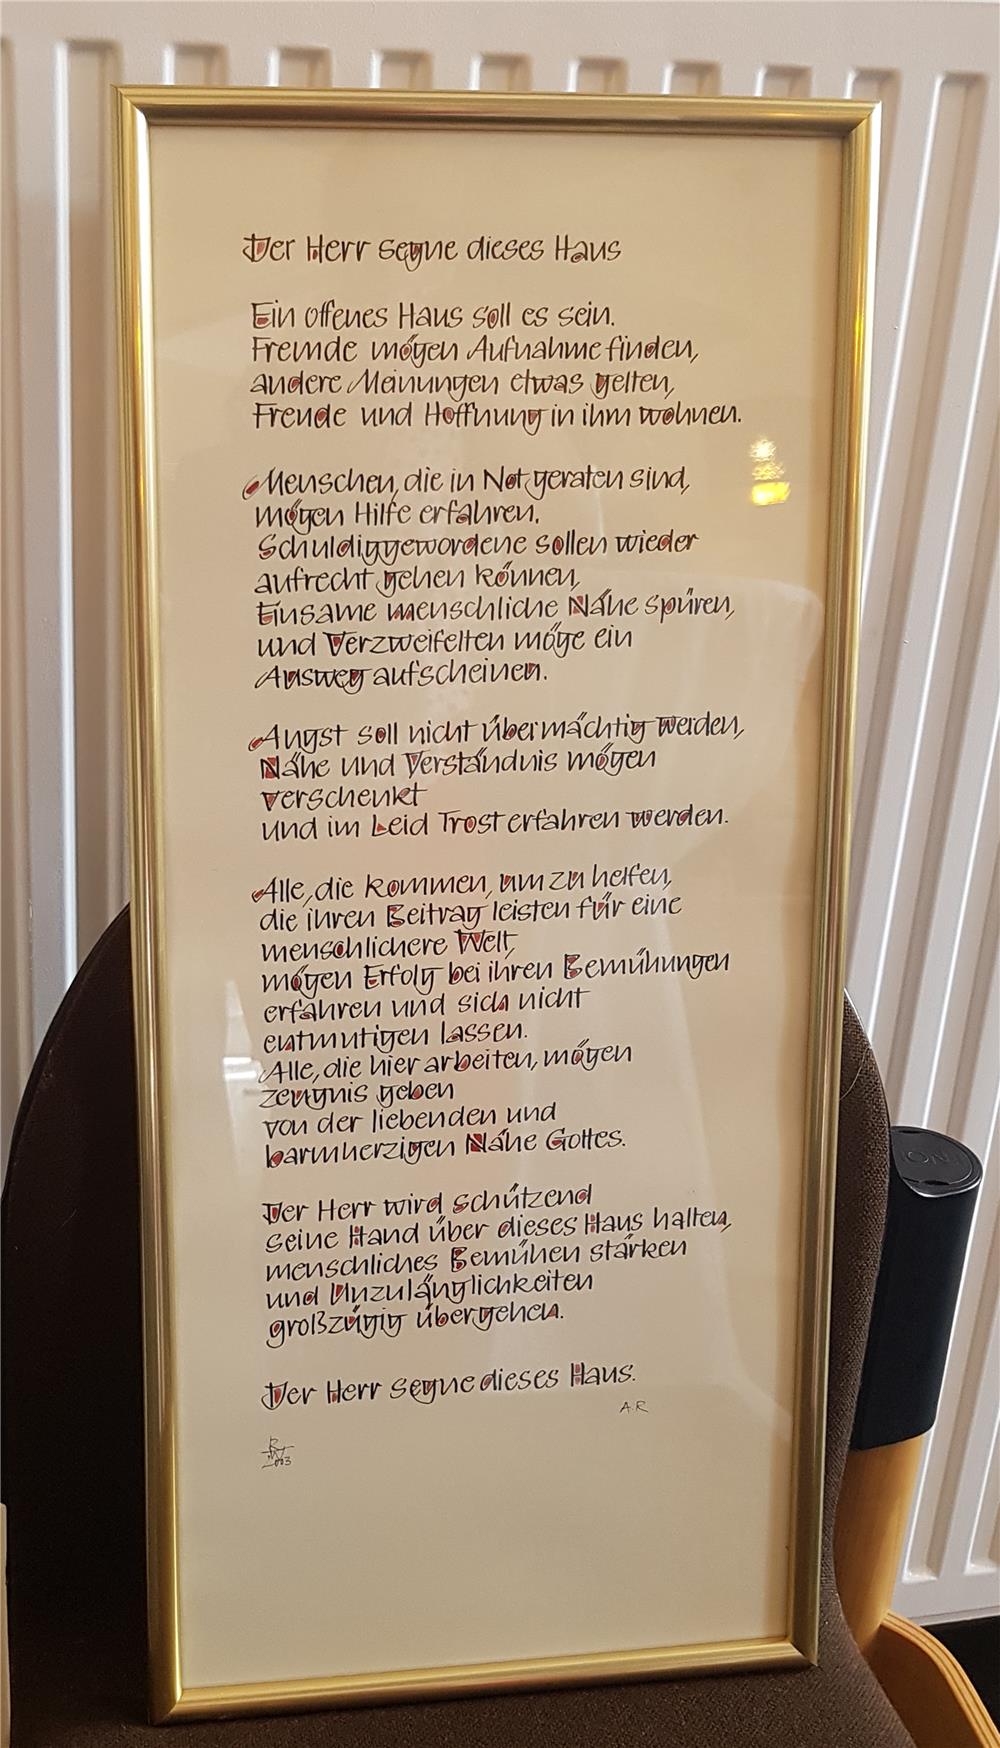 Der Herr segne dieses Haus
Ein offenes Haus soll es sein.
Fremde mögen Aufnahme finden,
andere Meinungen etwas gelten,
Freude und Hoffnung in ihm wohnen.
Menschen, die in Not geraten sind,
mögen Hilfe erfahren.
Schuldiggewordene sollen wieder
aufrecht gehen können,
Einsame menschliche Nähe spüren,
und Verzweifelten möge ein
Ausweg aufscheinen.
Angst soll nicht übermächtig werden,
Nähe und Verständnis mögen
verschenkt
und im Leid Trost erfahren werden.
Alle, die kommen, um zu helfen,
die ihren Beitrag leisten für eine
menschlichere Welt,
mögen Erfolg bei ihren Bemühungen
erfahren und sich nicht
entmutigen lassen.
Alle, die hier arbeiten, mögen
Zeugnis geben
von der liebenden und
barmherzigen Nähe Gottes.
Der Herr wird schützend
seine Hand über dieses Haus halten,
menschliches Bemühen stärken
und Unzulänglichkeiten
großzügig übergehen.
Der Herr segne dieses Haus.
A.R